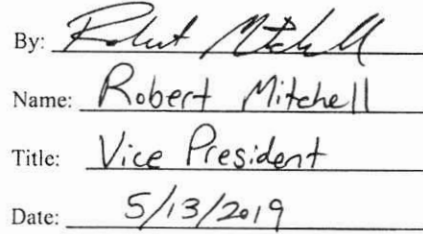 By: Robert Mitchell
Name: Robert Mitchell
Title: Vice President
Date: 5/13/2019